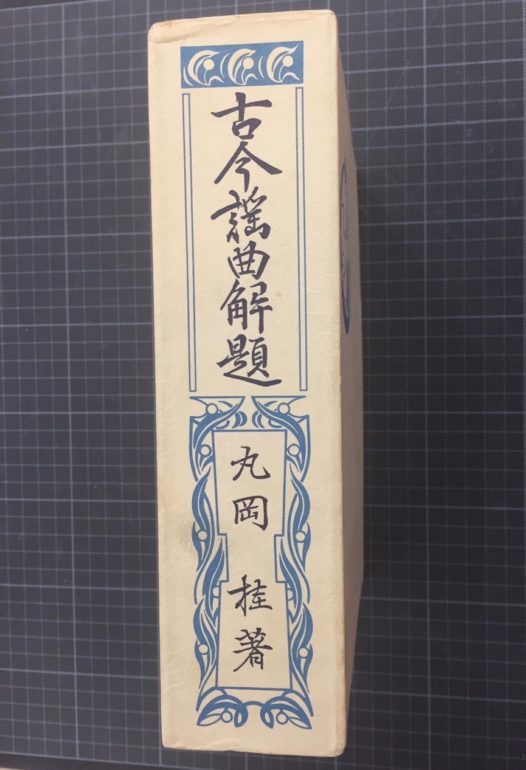 古今謡曲解題
丸岡 桂著